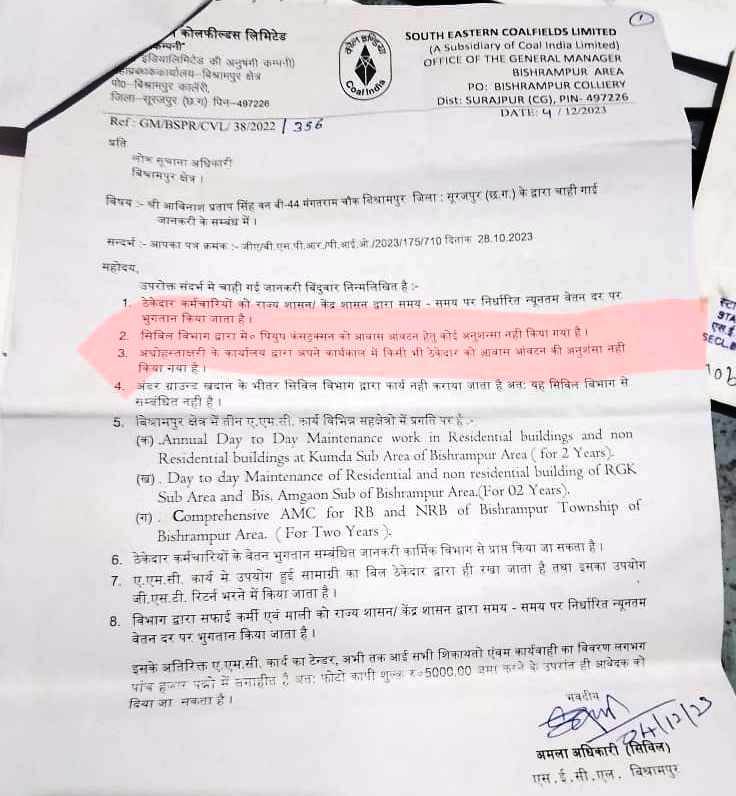 कोलफील्डस लिमिटेड
कम्पनी"
इंडियालिमिटेड की अनुषंगी कम्पनी)
महाप्रबाककार्यालय–बिश्रामपुर क्षेत्र
पो०–बिश्रामपुर कालेरी,
जिला–सूरजपुर (छ.ग.) पिन–497226
कोल इण्डिया
Coal India
1
SOUTH EASTERN COALFIELDS LIMITED
(A Subsidiary of Coal India Limited)
OFFICE OF THE GENERAL MANAGER
BISHRAMPUR AREA
PO: BISHRAMPUR COLLIERY
Dist: SURAJPUR (CG), PIN- 497226
DATE: 4 /12/2023
Ref : GM/BSPR/CVL/ 38/2022 / 356
प्रति
लोक सूचाना अधिकारी
बिश्रामपुर क्षेत्र ।
विषय :- श्री आविनाश प्रताप सिंह वन बी-44 मंगतराम चौक बिश्रामपुर जिला : सूरजपुर (छ.ग.) के द्वारा चाही गाई
जानकरी के सम्बंध में ।
सन्दर्भ :- आपका पत्र क्रमंक :- जीए/बी.एस.पी.आर./पी.आई.ओ./2023/175/710 दिनांक 28.10.2023
महोदय,
उपरोक्त संदर्भ मे चाही गई जानकारी बिंदुवार निन्मलिखित है :-
1. ठेकेदार कर्मचारियों को राज्य शासन/ केंद्र शासन द्वारा समय - समय पर निर्धारित न्यूनतम वेतन दर पर
भुगतान किया जाता है ।
2. सिविल विभाग द्वारा मे० पियुष कंसट्रक्सन को आवास आवंटन हेतु कोई अनुशंसा नही किया गया है ।
3. अधोहस्ताक्षरी के कार्यालय द्वारा अपने कार्यकाल में किसी भी ठेकेदार को आवास आवंटन की अनुशंसा नही
किया गया है ।
4. अंडर ग्राउन्ड खदान के भीतर सिविल विभाग द्वारा कार्य नही कराया जाता है अतः यह सिविल विभाग से
सम्बंधित नही है ।
5. बिश्रामपुर क्षेत्र में तीन ए.एम.सी. कार्य विभिन्न सहक्षेत्रो में प्रगति पर है .-
(क) .Annual Day to Day Maintenance work in Residential buildings and non
Residential buildings at Kumda Sub Area of Bishrampur Area ( for 2 Years).
(ख) . Day to day Maintenance of Residential and non residential building of RGK
Sub Area and Bis. Amgaon Sub of Bishrampur Area.(For 02 Years).
(ग) . Comprehensive AMC for RB and NRB of Bishrampur Township of
Bishrampur Area. ( For Two Years ).
6. ठेकेदार कर्मचारियों के वेतन भुगतान सम्बंधित जानकारी कार्मिक विभाग से प्राप्त किया जा सकता है ।
7. ए.एम.सी. कार्य मे उपयोग हुई सामाग्री का बिल ठेकेदार द्वारा ही रखा जाता है तथा इसका उपयोग
जी.एस.टी. रिटर्न भरने में किया जाता है ।
8. विभाग द्वारा सफाई कर्मी एवं माली को राज्य शासन/ केंद्र शासन द्वारा समय - समय पर निर्धारित न्यूनतम
वेतन दर पर भुगतान किया जाता है ।
इसके अतिरिक्त ए.एम.सी. कार्य का टेन्डर, अभी तक आई सभी शिकायतो एंवम कार्यवाही का विवरण लगभग
पांच हजार पन्नो में संगाहीत है अतः फोटो कापी शुल्क रु०5000.00 जमा करने के उपरांत ही आवेदक को
दिया जा सकता है ।
भवदीय
04/12/23
अमला अधिकारी (सिविल)
एस.ई.सी.एल. बिश्रामपुर
STA
एस.ई.
SECL.B
106